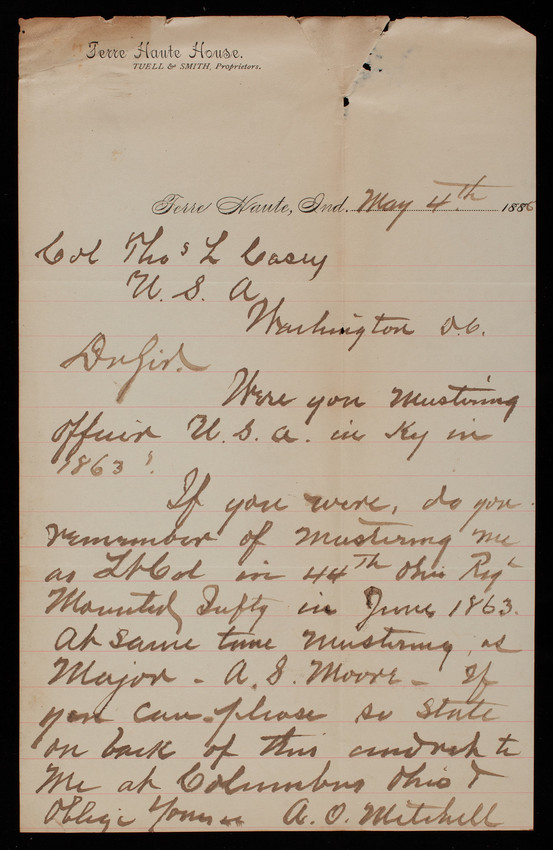 Terre Haute House.
TUELL & SMITH, Proprietors.
Terre Haute, Ind. May 4th 1886
Col Thos L Casey
U. S. A
Washington D.C.
Dr Sir.
Were you mustering
officer U. S. A. in Ky in
1863?
If you were, do you
remember of mustering me
as Lt Col in 44th Ohio Regt
Mounted Infty in June 1863.
At same time mustering, as
Major - A. S. Moore - If
you can please so state
on back of this and to
me at Columbus Ohio &
Oblige Yours A. O. Mitchell